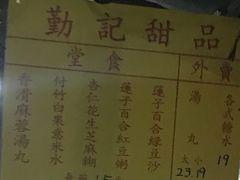 勤記甜品
堂食
外賣
各式糖水
19
湯丸
大 小
23.19
蓮子百合綠豆沙
蓮子百合紅豆粥
杏仁花生芝麻糊
付竹白果薏米水
香滑麻蓉湯丸